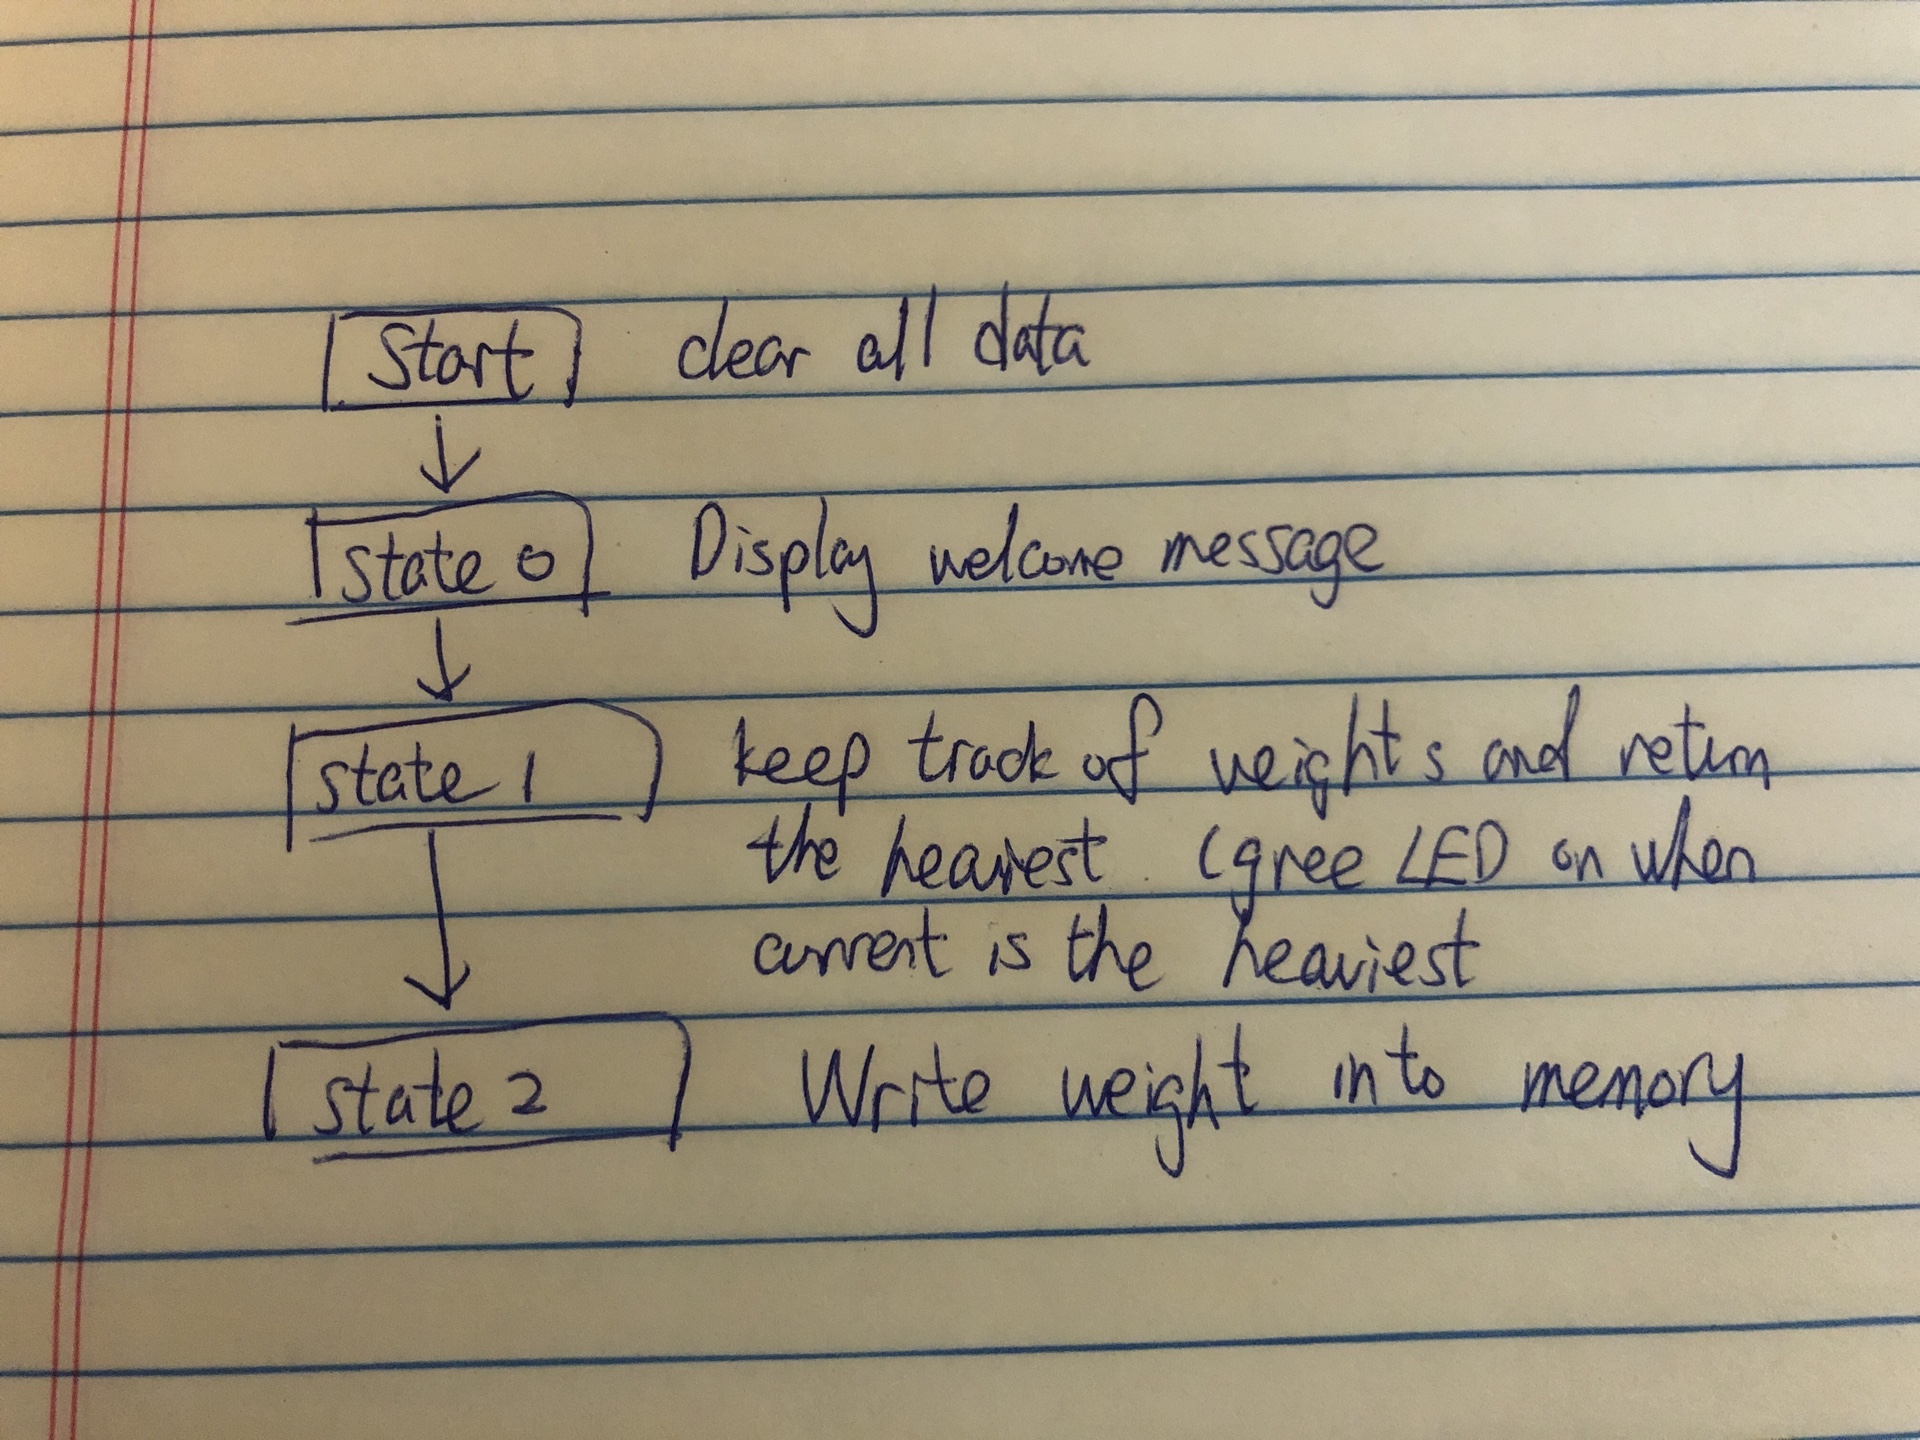 Start clear all data
state 0 Display welcome message
state 1 keep track of weights and return
the heaviest. (gree LED on when
current is the heaviest
state 2 Write weight into memory